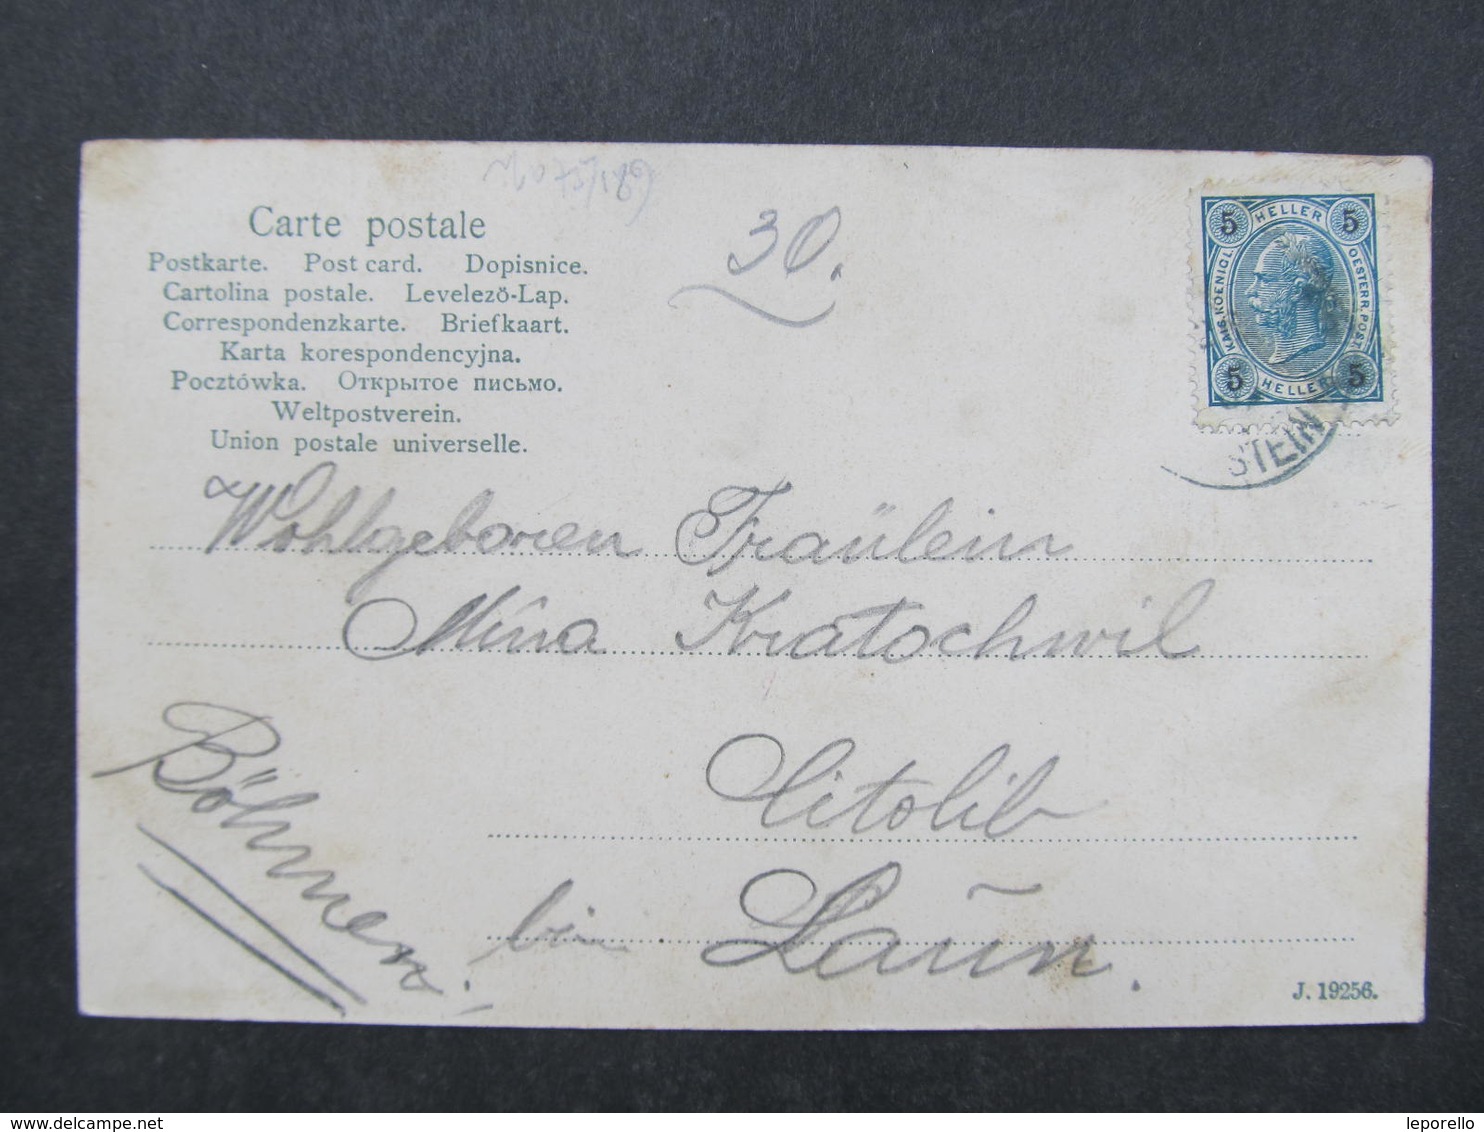 Carte postale
Postkarte. Post card. Dopisnice.
Cartolina postale. Levelező-Lap.
Correspondenzkarte. Briefkaart.
Karta korespondencyjna.
Pocztówka. Открытое письмо.
Weltpostverein.
Union postale universelle.
30.
5 HELLER 5
KAIS. KOENIGL. OESTERR. POST
5 HELLER 5
STEIN
Wohlgeboren Fräulein
Mina Kratochwil
Citolib
bei Laun.
Böhmen.
J. 19256.
www.delcampe.net
leporello